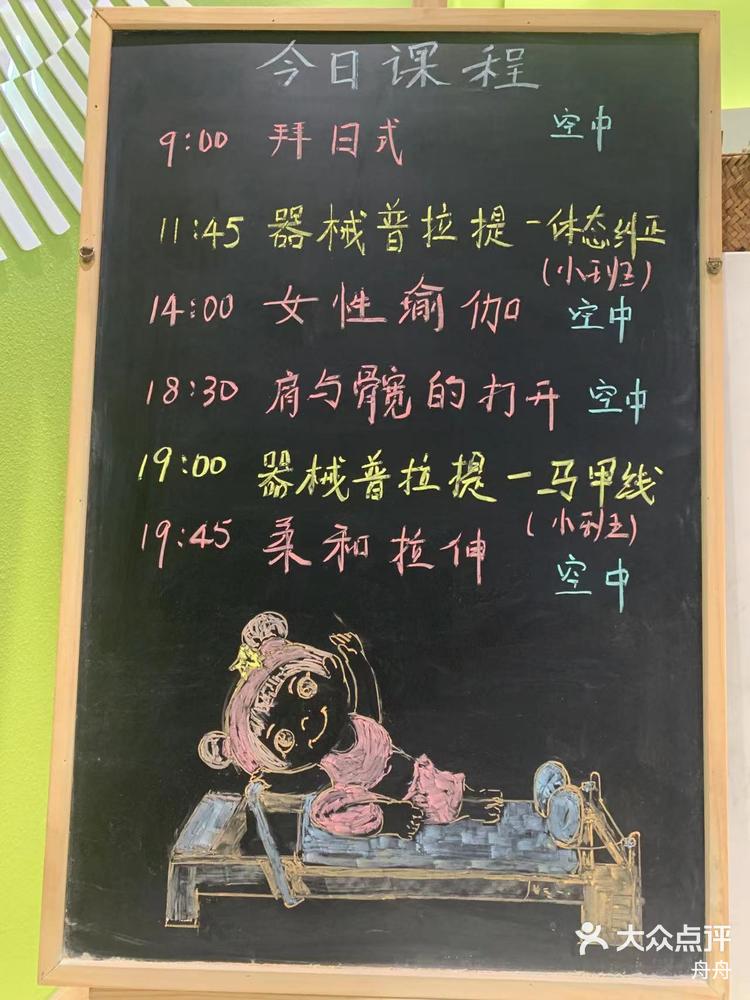 今日课程
9:00 拜日式 空中
11:45 器械普拉提-体态纠正
(小班)
14:00 女性瑜伽 空中
18:30 肩与髋宽的打开 空中
19:00 器械普拉提-马甲线
(小班)
19:45 柔和拉伸 空中
大众点评
舟舟